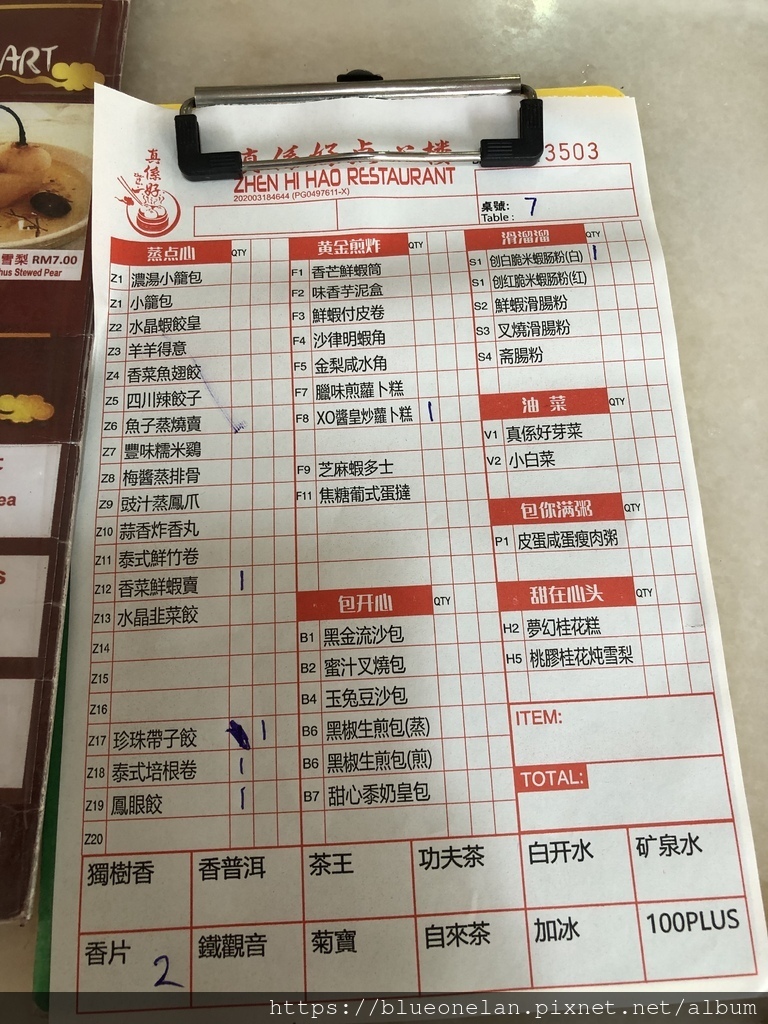 ART
雪梨 RM7.00
hus Stewed Pear
真係好
真係好点心楼
3503
ZHEN HI HAO RESTAURANT
202003184644 (PG0497611-X)
桌號:
Table : 7
蒸点心 QTY
Z1 濃湯小籠包
Z1 小籠包
Z2 水晶蝦餃皇
Z3 羊羊得意
Z4 香菜魚翅餃
Z5 四川辣餃子
Z6 魚子蒸燒賣
Z7 豐味糯米鷄
Z8 梅醬蒸排骨
Z9 豉汁蒸鳳爪
Z10 蒜香炸香丸
Z11 泰式鮮竹卷
Z12 香菜鮮蝦賣 1
Z13 水晶韭菜餃
Z14
Z15
Z16
Z17 珍珠帶子餃 1
Z18 泰式培根卷 1
Z19 鳳眼餃 1
Z20
黄金煎炸 QTY
F1 香芒鮮蝦筒
F2 味香芋泥盒
F3 鮮蝦付皮卷
F4 沙律明蝦角
F5 金梨咸水角
F7 臘味煎蘿卜糕
F8 XO醬皇炒蘿卜糕 1
F9 芝麻蝦多士
F11 焦糖葡式蛋撻
包开心 QTY
B1 黑金流沙包
B2 蜜汁叉燒包
B4 玉兔豆沙包
B6 黑椒生煎包(蒸)
B6 黑椒生煎包(煎)
B7 甜心黍奶皇包
滑溜溜 QTY
S1 创白脆米蝦肠粉(白) 1
S1 创红脆米蝦肠粉(红)
S2 鮮蝦滑腸粉
S3 叉燒滑腸粉
S4 斋腸粉
油 菜 QTY
V1 真係好芽菜
V2 小白菜
包你满粥 QTY
P1 皮蛋咸蛋瘦肉粥
甜在心头 QTY
H2 夢幻桂花糕
H5 桃膠桂花炖雪梨
ITEM:
TOTAL:
獨樹香 香普洱 茶王 功夫茶 白开水 矿泉水
香片 2 鐵觀音 菊寶 自來茶 加冰 100PLUS
https://blueonelan.pixnet.net/album